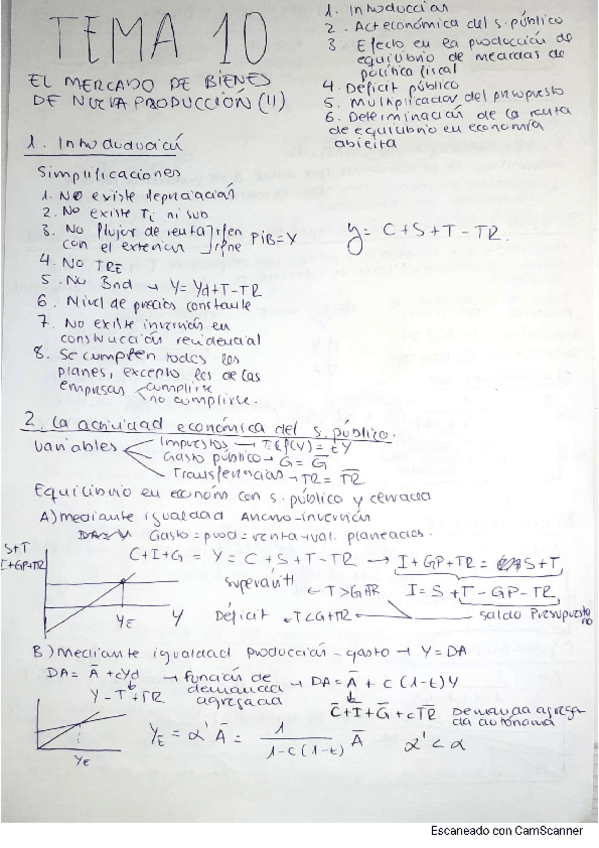 TEMA 10
EL MERCADO DE BIENES
DE NUEVA PRODUCCIÓN (II)
1. Introducción
2. Act económica del s. público
3. Efecto en la producción de
equilibrio de medidas de
política fiscal
4. Déficit público
5. Multiplicador del presupuesto
6. Determinación de la renta
de equilibrio en economía
abierta
1. Introducción
Simplificaciones
1. No existe depreciación
2. No existe Ti ni sub
3. No flujos de renta rfen
con el exterior rfne PiB=Y
4. No TRE
5. No Bnd → Y= Yd+T-TR
6. Nivel de precios constante
7. No existe inversión en
construcción residencial
8. Se cumplen todos los
planes, excepto los de las
empresas cumplirse
no cumplirse.
y = C+S+T-TR.
2. La actividad económica del s. público.
Variables
Impuestos → T(f(Y) = tY
Gasto público → G = G̅
Transferencias → TR = T̅R̅
Equilibrio en econom con s. público y cerrada
A) mediante igualdad Ahorro-inversión
Gasto = prod = renta = planeadas.
C+I+G = Y = C+S+T-TR → I+GP+TR = S+T
S+T
I+GP+TR
YE
Y
Superávit ← T>G+TR
I = S+T-GP-TR
Déficit ← T<G+TR
Saldo Presupuestario
B) Mediante igualdad producción-gasto → Y=DA
DA = A̅ + cYd → función de
demanda
agregada
Y-T+TR
→ DA = A̅ + c(1-t)Y
C̅+I̅+G̅+cT̅R̅
Demanda agrega
da autónoma
YE
YE = α' A̅ = 1 / 1-c(1-t) A̅
α' < α
Escaneado con CamScanner